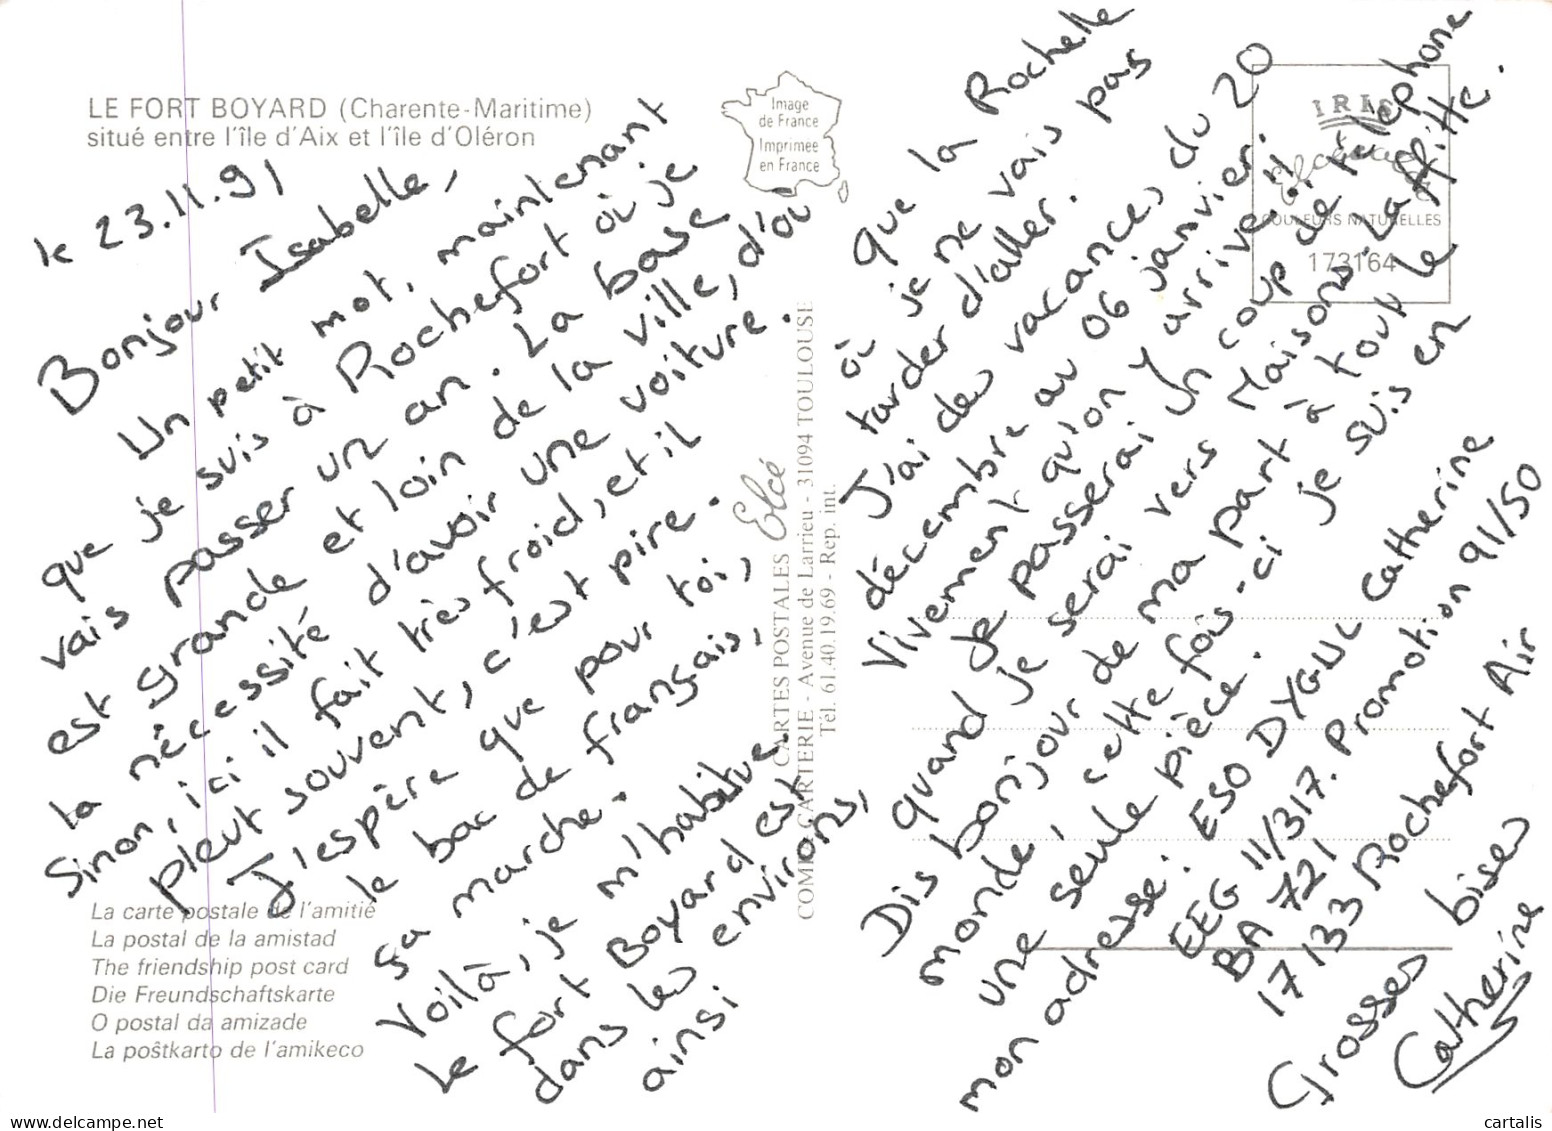 LE FORT BOYARD (Charente-Maritime)
situé entre l'île d'Aix et l'île d'Oléron
Image
de France
Imprimée
en France
IRIS
COULEURS NATURELLES
173164
le 23.11.91
Bonjour Isabelle,
Un petit mot, maintenant
que je suis à Rochefort où je
vais passer un an. La base
est grande et loin de la ville, d'où
la nécessité d'avoir une voiture.
Sinon, ici il fait très froid, et il
pleut souvent, c'est pire.
J'espère que pour toi,
le bac de français,
ça marche.
Voilà, je m'habitue.
le fort Boyard est
dans les environs,
ainsi
que la Rochelle
où je ne vais pas
tarder d'aller.
J'ai des vacances, du 20
décembre au 06 janvier.
Vivement qu'on y arrive
Je passerai un coup de téléphone
quand je serai vers Maisons-Laffitte.
Dis bonjour de ma part à tout le
monde, cette fois-ci je suis en
une seule pièce.
mon adresse: ESO Catherine
EEG 11/317. Promotion 91/50
BA 721
17133 Rochefort Air
Grosses bises
Catherine
CARTES POSTALES Elcé
CARTERIE - Avenue de Larrieu - 31094 TOULOUSE
Tél. 61.40.19.69 - Rep. int.
La carte postale de l'amitié
La postal de la amistad
The friendship post card
Die Freundschaftskarte
O postal da amizade
La poŝtkarto de l'amikeco
delcampe.net
cartalis